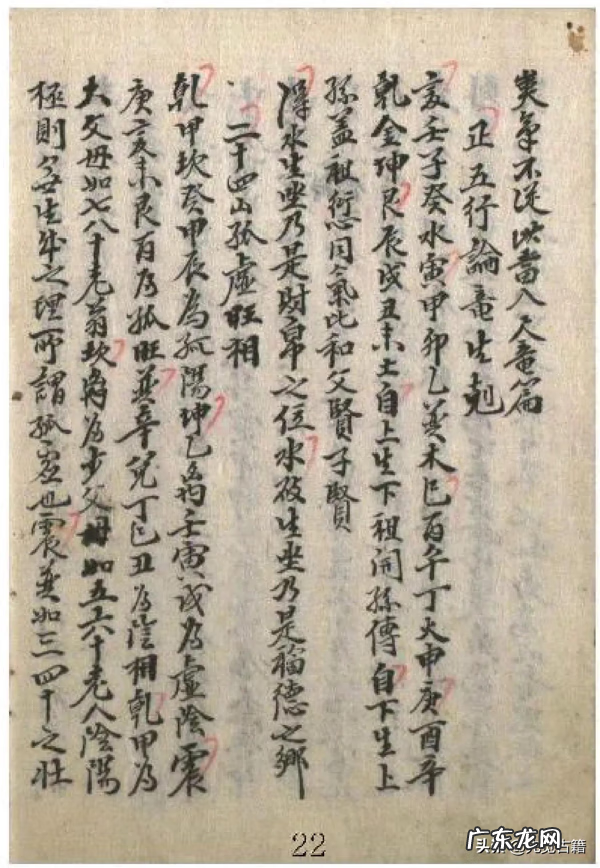 巽龍不從此當入天竜篇
正五行論竜生剋
亥壬子癸水寅甲卯乙巽木巳丙午丁火申庚酉辛
乾金坤艮辰戌丑未土自上生下祖開孫傳自下生上
孫盖祖愆同氣比和父賢子賢
浮水生坐乃是財帛之位水砂生坐乃是福德之鄉
二十四山孤虛旺相
乾甲坎癸申辰為孤陽坤乙离壬寅戌為虛陰震
庚亥未艮丙為孤旺巽辛兌丁巳丑為陰相乾甲為
大父母如七八十老翁坎离為少父母如五六十老人陰陽
極則無生成之理所謂孤虛也震巽如三四十之壯
22
广东龙网